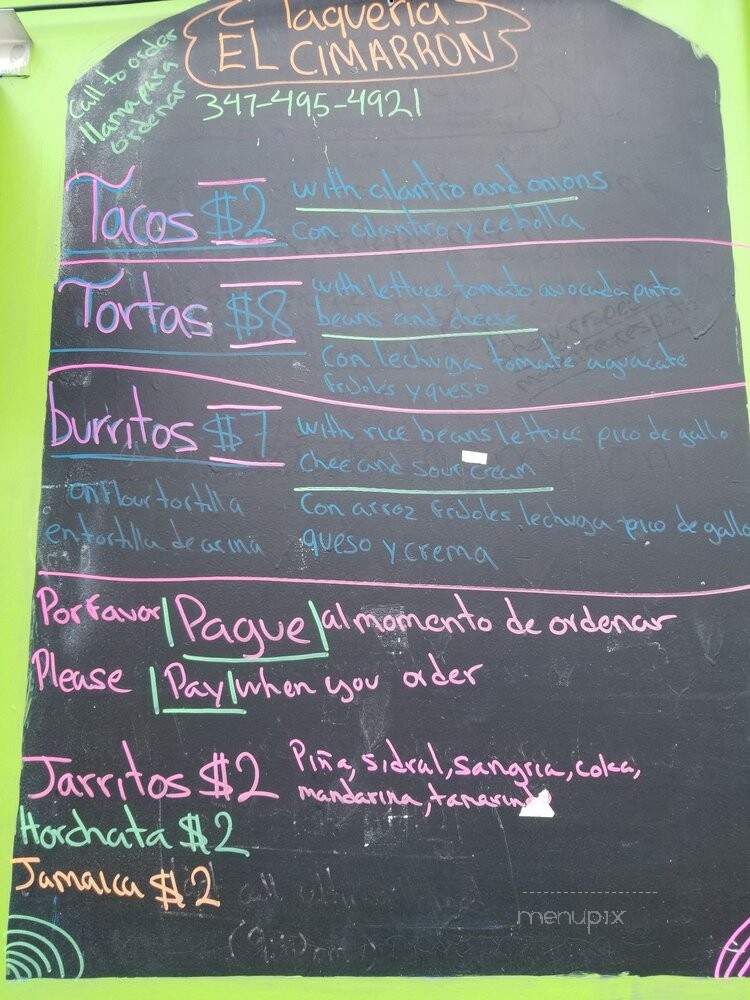 Taqueria
EL CIMARRON
Call to order
llama para
ordenar
347-495-4921
Tacos $2
with cilantro and onions
con cilantro y cebolla
Tortas $8
with lettuce tomato avocado pinto
beans and cheese
con lechuga tomate aguacate
frijoles y queso
burritos $7
on flour tortilla
en tortilla de arina
with rice beans lettuce pico de gallo
chee and sour cream
con arroz frijoles lechuga pico de gallo
queso y crema
Por Favor Pague al momento de ordenar
Please Pay when you order
Jarritos $2
Piña, sidral, sangria, coka,
mandarina, tamarindo
Horchata $2
Jamaica $2
menupix